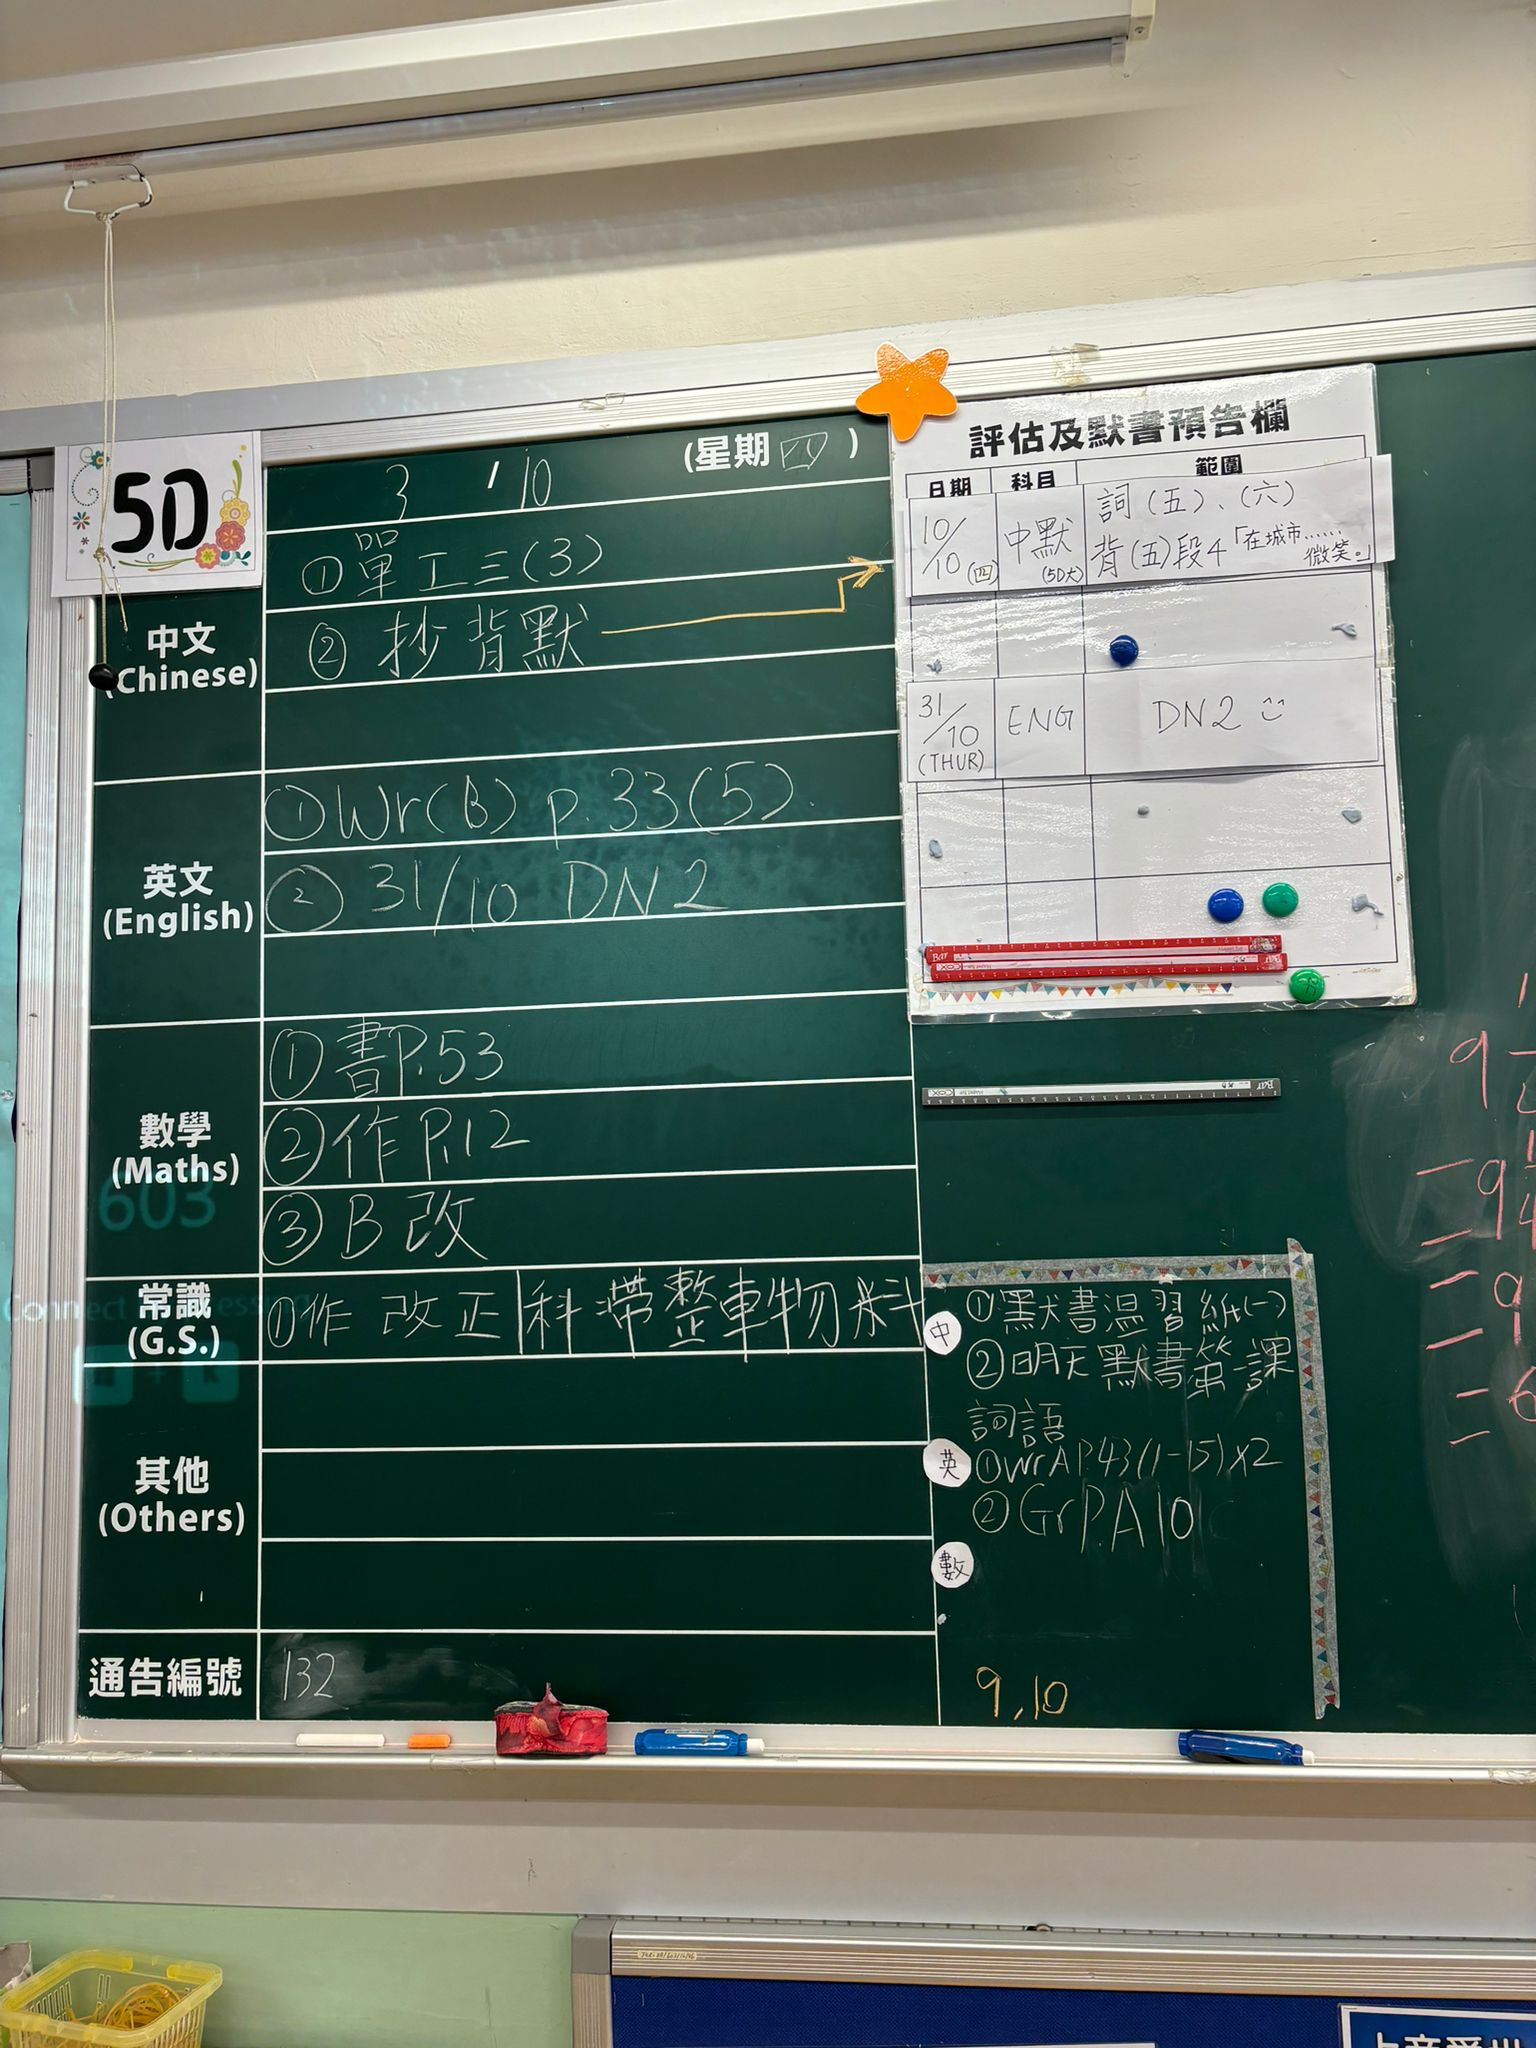 5D
3 / 10 (星期四)
中文
(Chinese)
①單工三(3)
② 抄背默
英文
(English)
①Wr(B) p.33(5)
② 31/10 DN2
數學
(Maths)
①書P.53
②作P.12
③B改
603
常識
(G.S.)
①作 改正|科 帶整車物料
其他
(Others)
通告編號
132
評估及默書預告欄
日期 科目 範圍
10/10(四) 中默(5D大) 詞(五)、(六)
背(五)段4「在城市……微笑。」
31/10 (THUR) ENG DN2
中
①默書溫習紙(一)
②明天默書第一課
詞語
英
①WrA P.43(1-15)x2
②GrP.A10
數
9,10